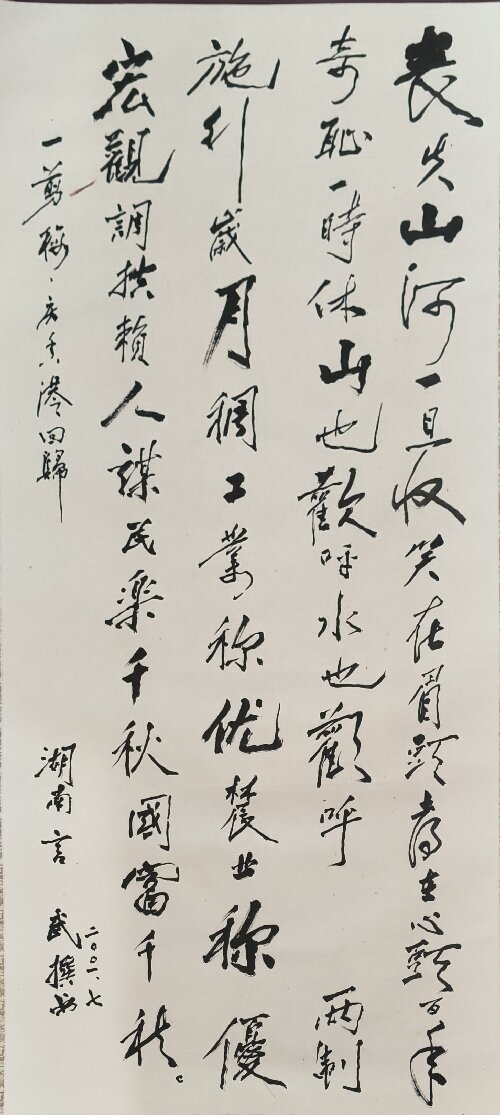 丧失山河一旦收笑在眉頭喜在心頭百年
奇耻一時休山也歡呼水也歡呼 两制
施行歲月稠工業称优農业称優
宏觀調控賴人謀民樂千秋國富千秋。
一剪梅、庆香港回歸
湖南言 武撰书
二〇〇一.七